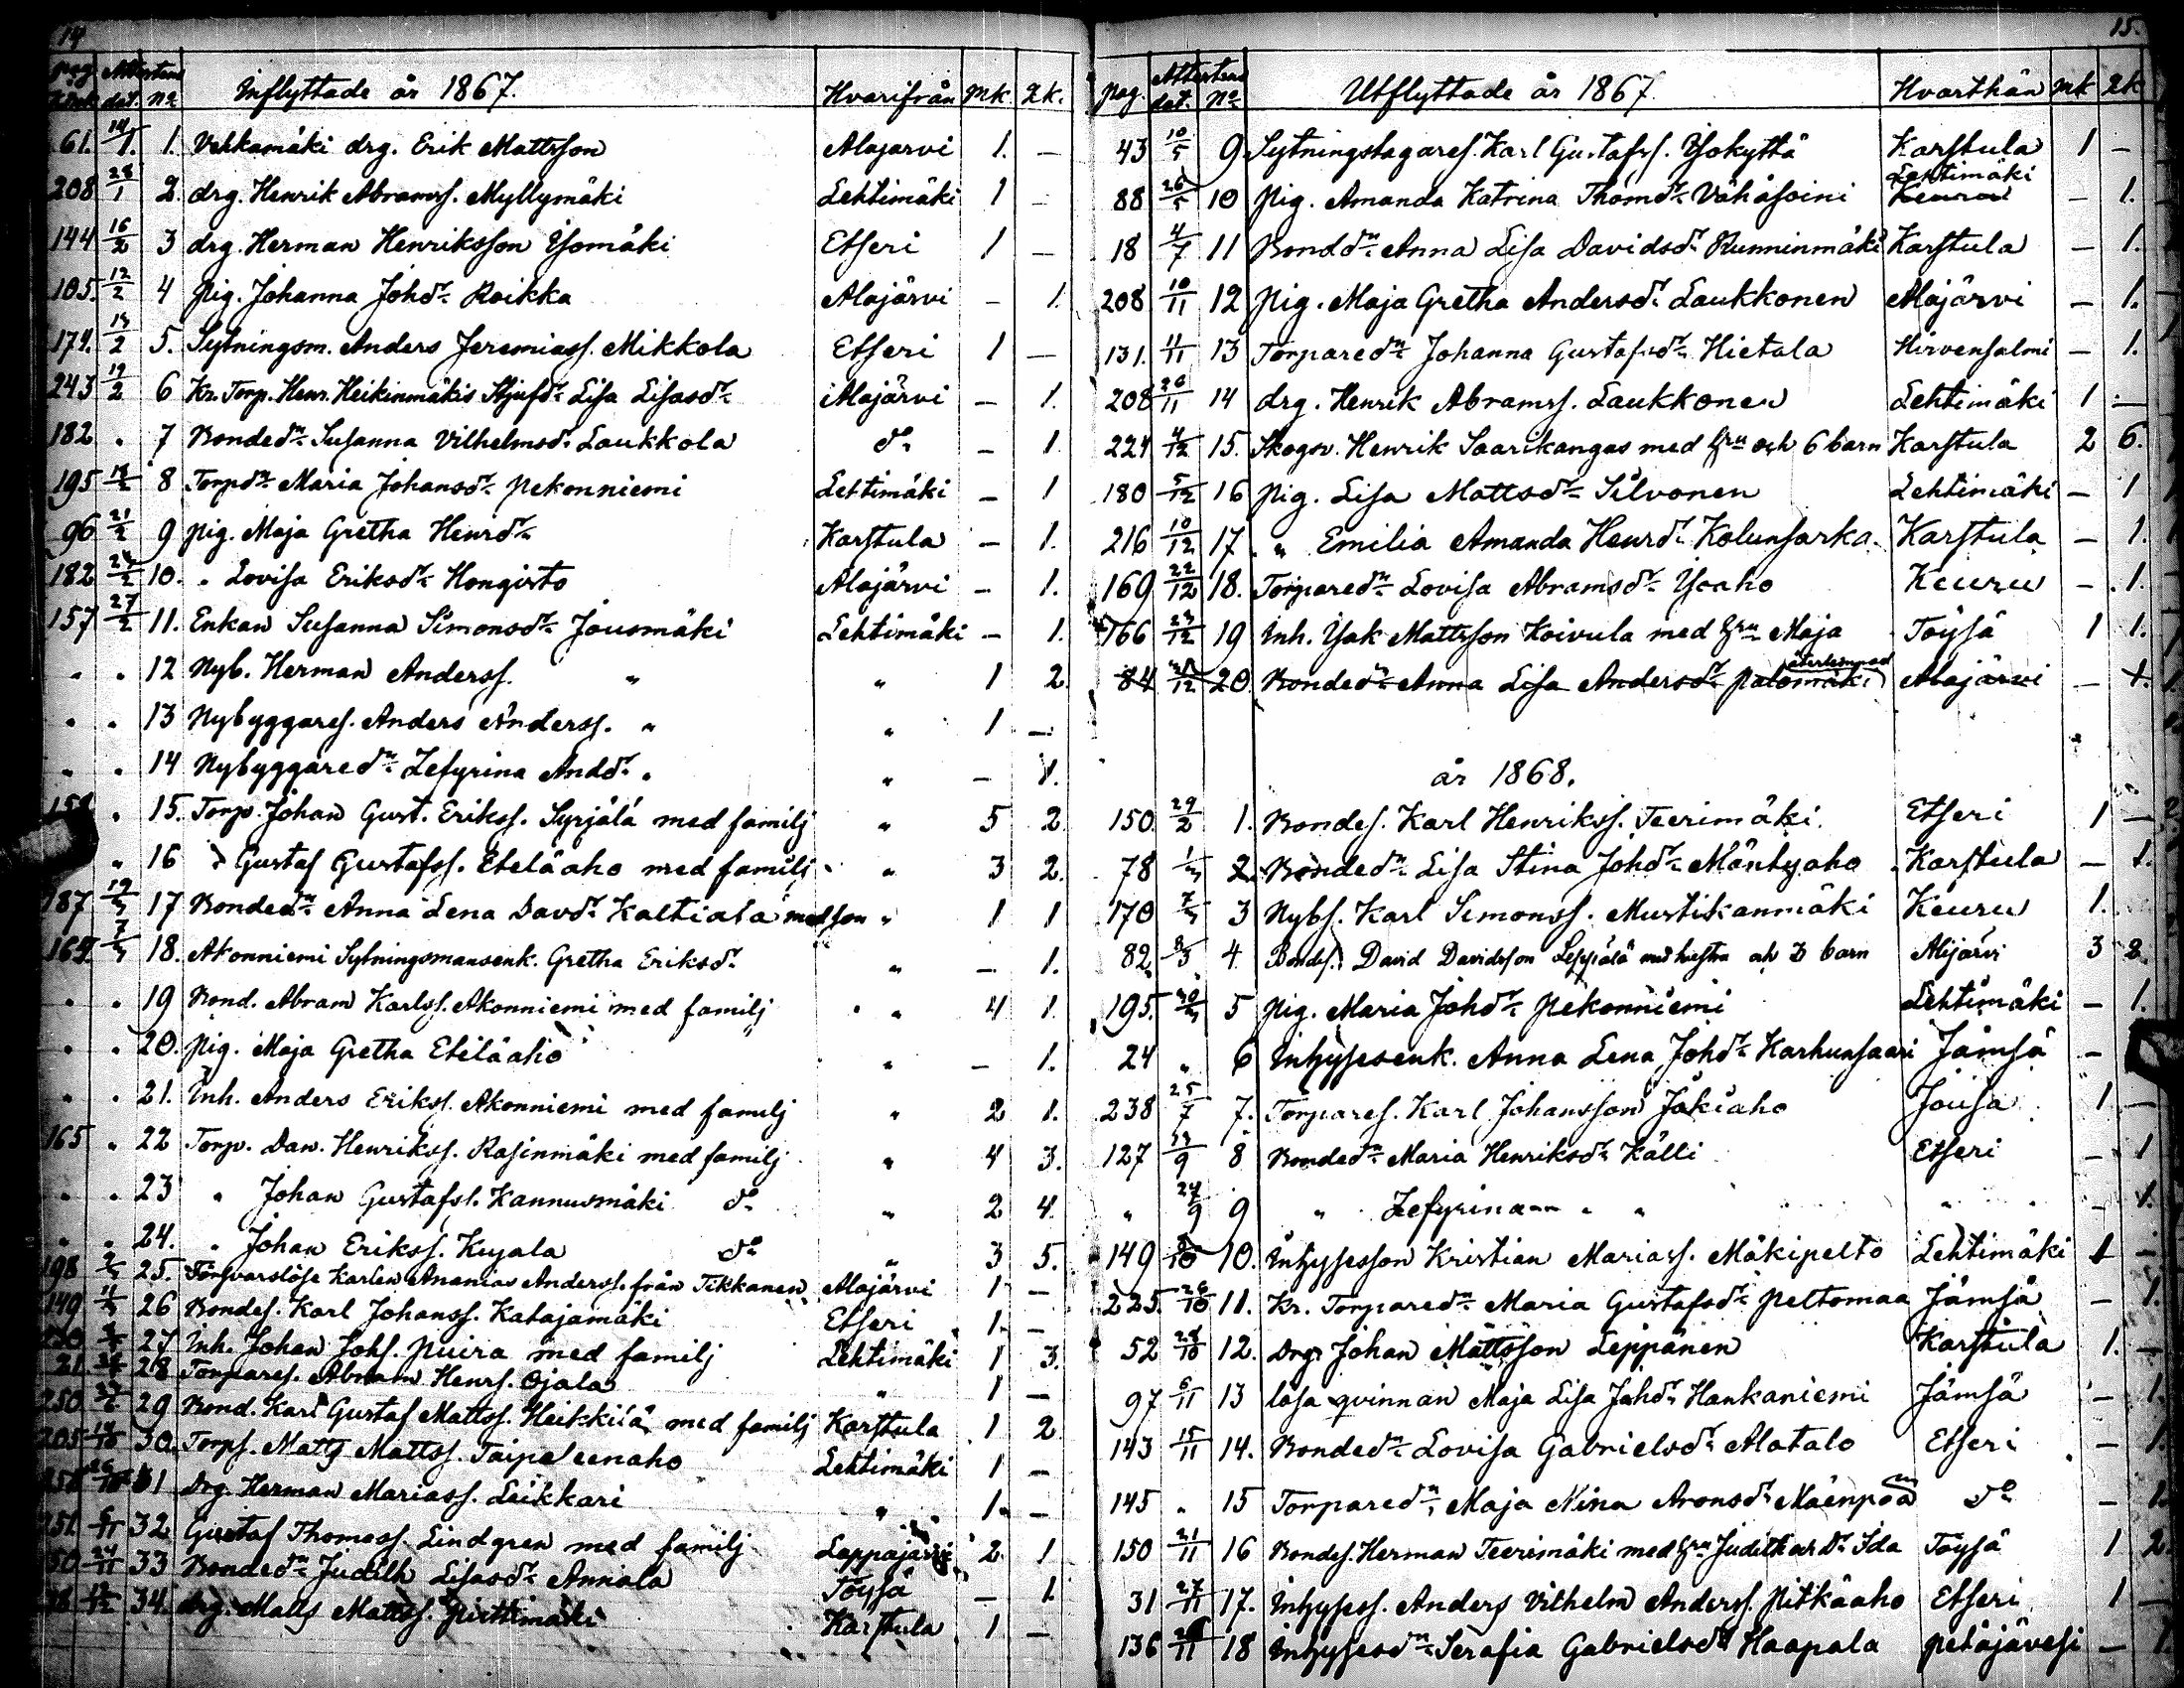 14
pag. Attestens
dat. No Inflyttade år 1867. Hvarifrån Mk. Qk.
61. 14/1. 1. Vehkamäki drg. Erik Mattsson Alajärvi 1. —
208 28/1 2. drg. Henrik Abramss. Myllymäki Lehtimäki 1 —
144 16/2 3 drg. Herman Henriksson Ysomäki Etseri 1 —
105. 12/2 4 Pig. Johanna Johdr. Roikka Alajärvi — 1.
174. 2 5. Sytningsm. Anders Jeremiass. Mikkola Etseri 1 —
243 19/2 6 Kr. Torp. Henr. Heikinmäkis Stjufdr Lisa Lisasdr Alajärvi — 1.
182 . 7 Bondedn Susanna Vilhelmsdr Laukkola do — 1
195 18/2 8 Torpdn Maria Johansdr Pekonniemi Lehtimäki — 1
96 21/2 9 Pig. Maja Gretha Henrdr Karstula — 1.
182 10. " Lovisa Eriksdr Hongisto Alajärvi — 1.
157 27/2 11. Enkan Susanna Simonsdr Jousmäki Lehtimäki — 1.
. . 12 Nyb. Herman Anderss. " " 1 2.
. . 13 Nybyggares. Anders Anderss. " " 1 —
. . 14 Nybyggaredn Zefyrina Anddr " " — 1.
. 15. Torp. Johan Gust. Erikss. Syrjälä med familj " 5 2.
" 16 Gustaf Gustafss. Eteläaho med familj " 3 2.
187 19/3 17 Bondedn Anna Lena Davdr Kaltiala med son " 1 1
169. 18. Akonniemi Sytningsmansenk. Gretha Eriksdr " — 1.
. . 19 Bond. Abram Karlss. Akonniemi med familj " 4 1.
. . 20. Pig. Maja Gretha Eteläaho " — 1.
. . 21. Inh. Anders Erikss. Akonniemi med familj " 2 1.
165 . 22 Torp. Dav. Henrikss. Rasinmäki med familj " 4 3.
. . 23 " Johan Gustafss. Kannusmäki do " 2 4.
. . 24. " Johan Erikss. Kujala do " 3 5.
198 25. Försvarslöse Karlen Ananias Anderss. från Tikkanen Alajärvi 1 —
149 26 Bondes. Karl Johanss. Katajamäki Etseri 1. —
27 Inh. Johan Johs. Puira med familj Lehtimäki 1 3.
21 28 Torpares. Abram Henrs. Ojala " 1 —
250 29 Bond. Karl Gustaf Mattss. Heikkilä med familj Karstula 1 2
205 30. Torps. Matts Mattss. Taipaleenaho Lehtimäki 1 —
31 Drg. Herman Mariass. Leikkari " 1. —
251 6/11 32. Gustaf Thomass. Lindgren med familj Lappajärvi 2 1
50 24/11 33 Bondedn Judith Lisasdr Annala Töysä — 1.
34. drg. Matts Mattss. Pirttimäki Karstula 1 —
15.
Pag. Attestens
dat. No Utflyttade år 1867. Hvarthän Mk Qk
43 10/5 9. Sytningstagares. Karl Gustafss. Ysokyttä Karstula 1 —
Lehtimäki
88 26/5 10 Pig. Amanda Katrina Thomdr Vähäsoini Keuru — 1.
18 4/7 11 Bonddn Anna Lisa Davidsdr Runninmäki Karstula — 1.
208 10/11 12 Pig. Maja Gretha Andersdr Laukkonen Alajärvi — 1.
131. 11/11 13 Torparedn Johanna Gustafsdr Hietala Hirvensalmi — 1.
208 26/11 14 drg. Henrik Abramss. Laukkonen Lehtimäki 1 —
224 4/12 15. Skogsv. Henrik Saarikangas med hru och 6 barn Karstula 2 6.
180 5/12 16 Pig. Lisa Mattsdr Silvonen Lehtimäki — 1
216 10/12 17 " Emilia Amanda Henrdr Kolunsarka Karstula — 1.
169 22/12 18. Torparedn Lovisa Abramsdr Ysoaho Keuru — 1.
166 23/12 19 Inh. Ysak Mattsson Koivula med hru Maja Töysä 1 1.
84 12 20 Bondedn Anna Lisa Andersdr Palomäki Alajärvi — 1.
år 1868.
150. 29/2 1. Bondes. Karl Henrikss. Teerimäki Etseri 1 —
78 1/3 2. Bondedn Lisa Stina Johdr Mäntyaho Karstula — 1.
170 7/3 3 Nybs. Karl Simonss. Mustikanmäki Keuru 1.
82 8/3 4. Bondes. David Davidsson Leppälä med hustru och 3 barn Alajärvi 3 2.
195. 5 Pig. Maria Johdr Pekonniemi Lehtimäki — 1.
24 " 6 Inhysesenk. Anna Lena Johdr Karhunsaari Jämsä —
238 25/7 7. Torpares. Karl Johansson Jokiaho Jousa 1 —
127 9 8 Bondedn Maria Henriksdr Källi Etseri — 1
" 24/9 9 " Zefyrina " " " — 1.
149 8/10 10. Inhysesson Kristian Mariass. Mäkipelto Lehtimäki 1 —
225. 26/10 11. Kr. Torparedn Maria Gustafsdr Peltomaa Jämsä — 1.
52 28/10 12. Drg. Johan Mattsson Leppänen Karstula 1. —
97 6/11 13 lösa qvinnan Maja Lisa Johdr Hankaniemi Jämsä — 1.
143 15/11 14. Bondedn Lovisa Gabrielsdr Alatalo Etseri — 1.
145 " 15 Torparedn Maja Nina Aronsdr Mäenpää do — 1.
150 21/11 16 Bondes. Herman Teerimäki med hru Judith och Dr Ida Töysä 1 2.
31 27/11 17. Inhysess. Anders Vilhelm Anderss. Pitkäaho Etseri 1 —
136 11 18 Inhysesdn Serafia Gabrielsdr Haapala Petäjävesi — 1.